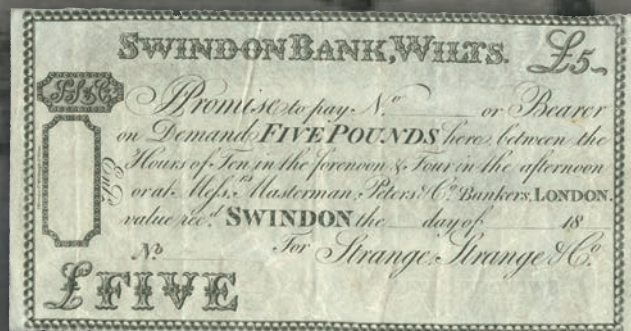 SWINDON BANK, WILTS. £5
I Promise to pay No. or Bearer
on Demand FIVE POUNDS here between the
Hours of Ten in the forenoon & Four in the afternoon
or at Messrs. Masterman, Peters & Co. Bankers, LONDON.
value recd. SWINDON the day of 18
No For Strange, Strange & Co.
Entd.
£FIVE